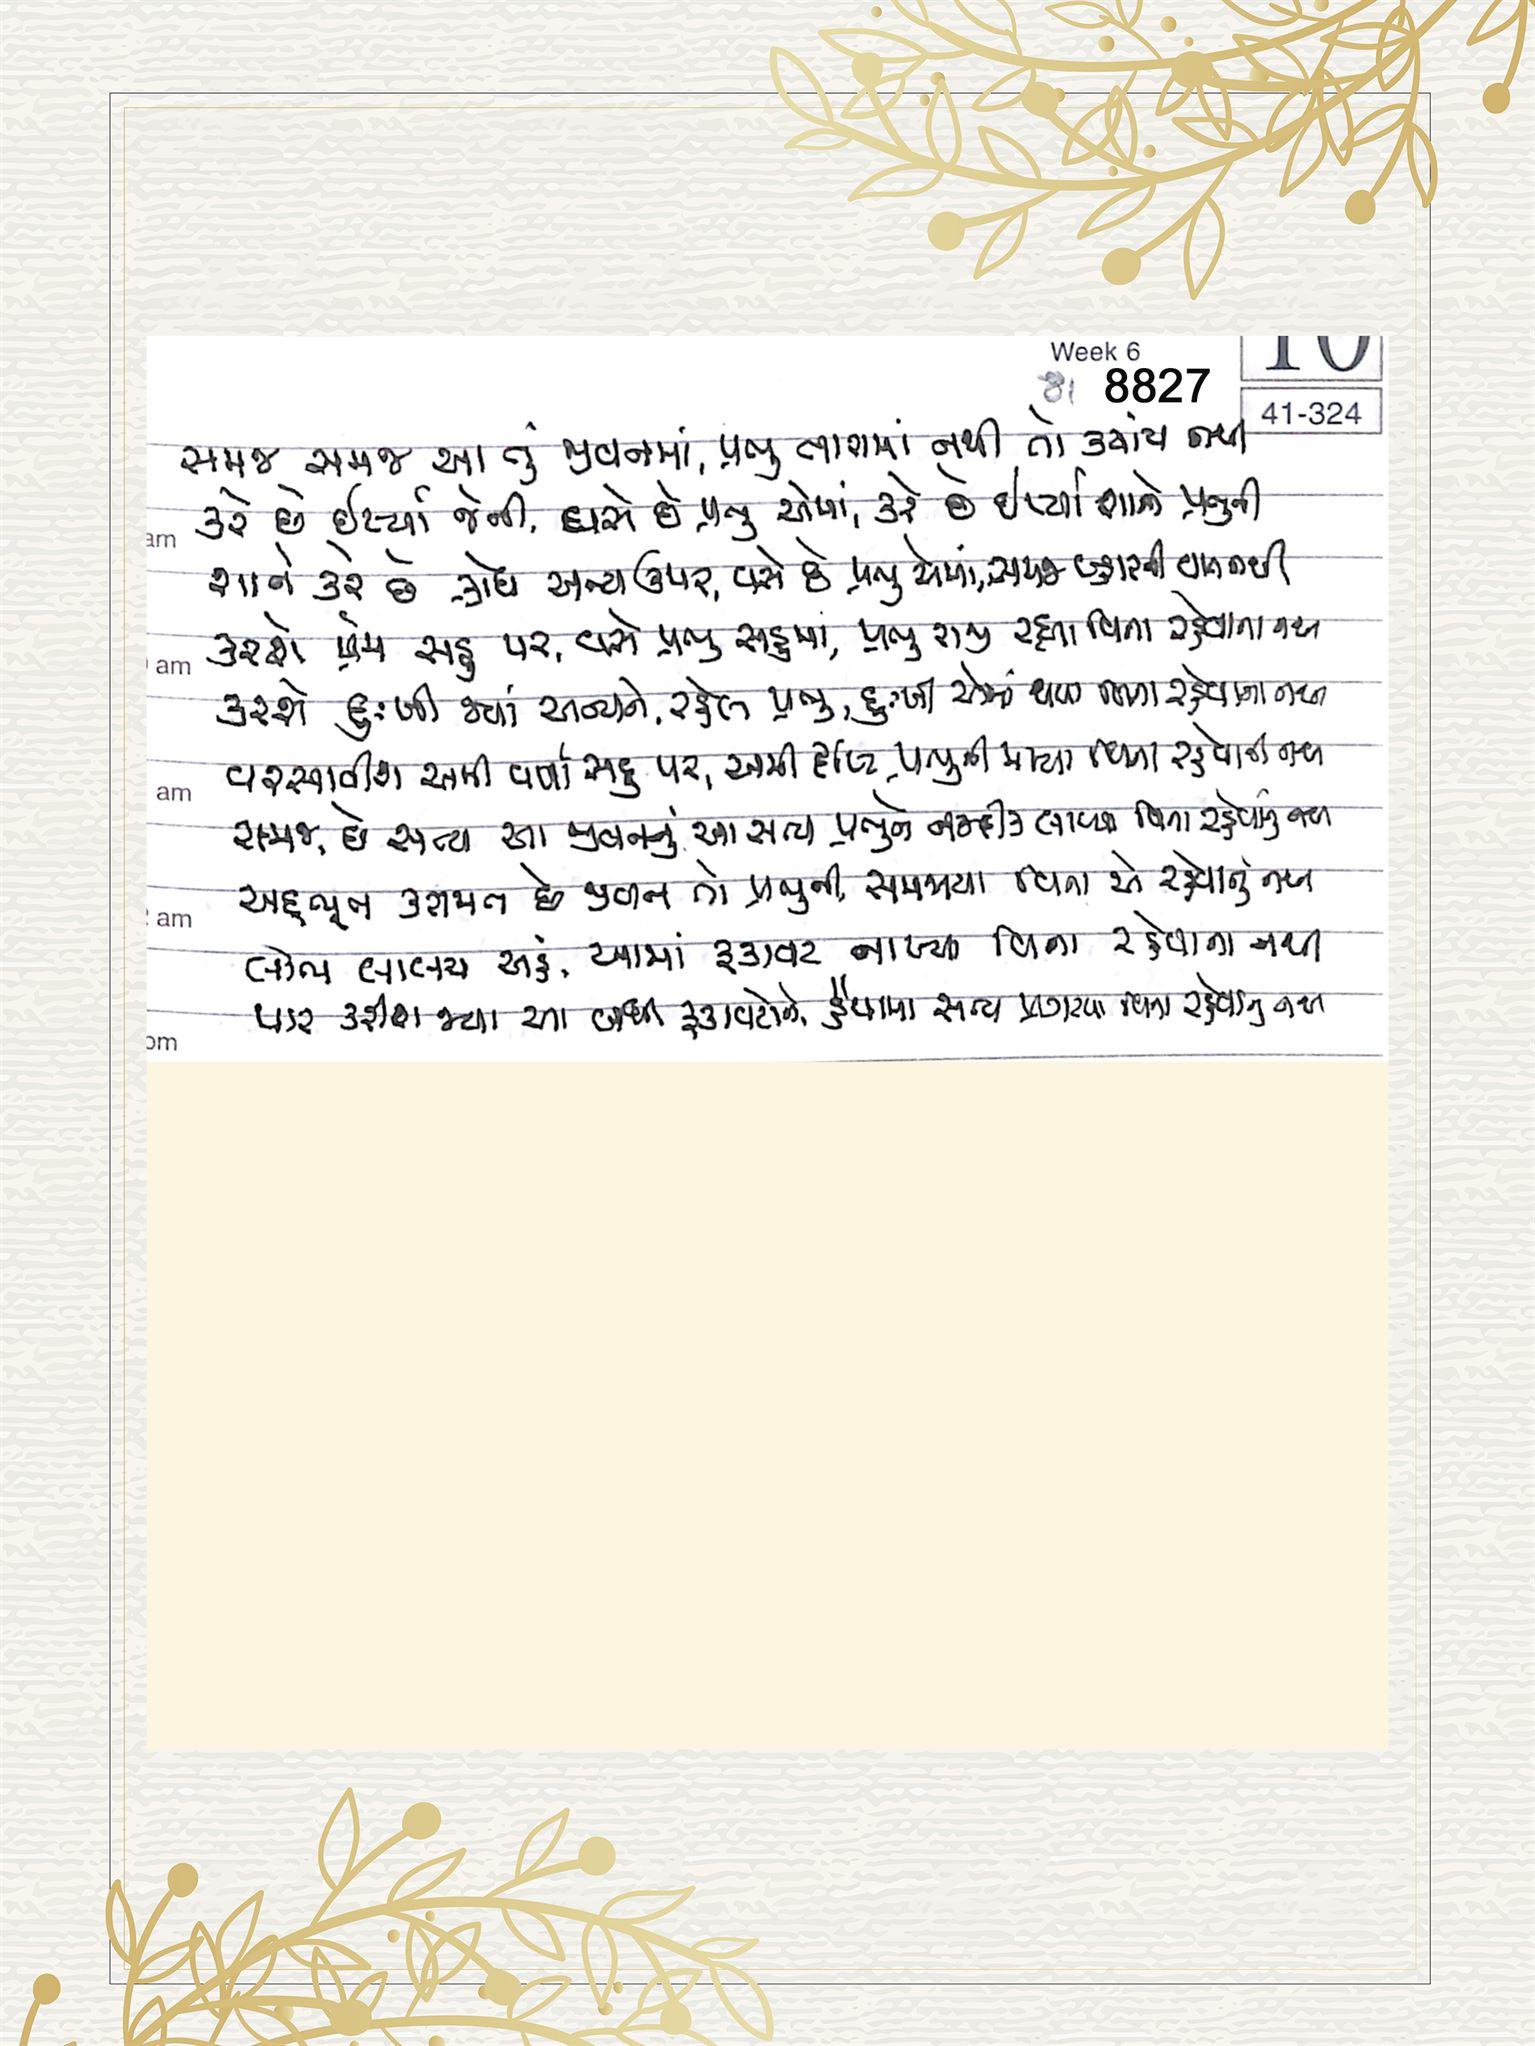 Week 6
10
8827
41-324
સમજ સમજ આ તું જીવનમાં, પ્રભુ તારામાં નથી તો ક્યાંય નથી
am
કરે છે ઈર્ષ્યા જેની, વસે છે પ્રભુ એમાં, કરે છે ઈર્ષ્યા શાને પ્રભુની
શાને કરે છે ક્રોધ અન્ય ઉપર, વસે છે પ્રભુ એમાં, સમજ બહારની વાત નથી
am
કરશે પ્રેમ સહુ પર, વસે પ્રભુ સહુમાં, પ્રભુ રાજી રહ્યા વિના રહેવાના નથી
કરશે દુઃખી જ્યાં અન્યને, રહેલ પ્રભુ, દુઃખી એમાં થયા વિના રહેવાના નથી
am
વરસાવીશ અમી વર્ષા સહુ પર, અમી દૃષ્ટિ પ્રભુની પામ્યા વિના રહેવાની નથી
સમજ, છે સત્ય આ જીવનનું, આ સત્ય પ્રભુને નજદીક લાવ્યા વિના રહેવાનું નથી
am
અદ્ભૂત કરામત છે જીવન તો પ્રભુની, સમજાયા વિના એ રહેવાનું નથી
લોભ લાલચ અહં, આમાં રૂકાવટ નાખ્યા વિના રહેવાના નથી
પાર કરીશ જ્યાં આ બધી રૂકાવટોને, હૈયામાં સત્ય પ્રગટયા વિના રહેવાનું નથી
pm